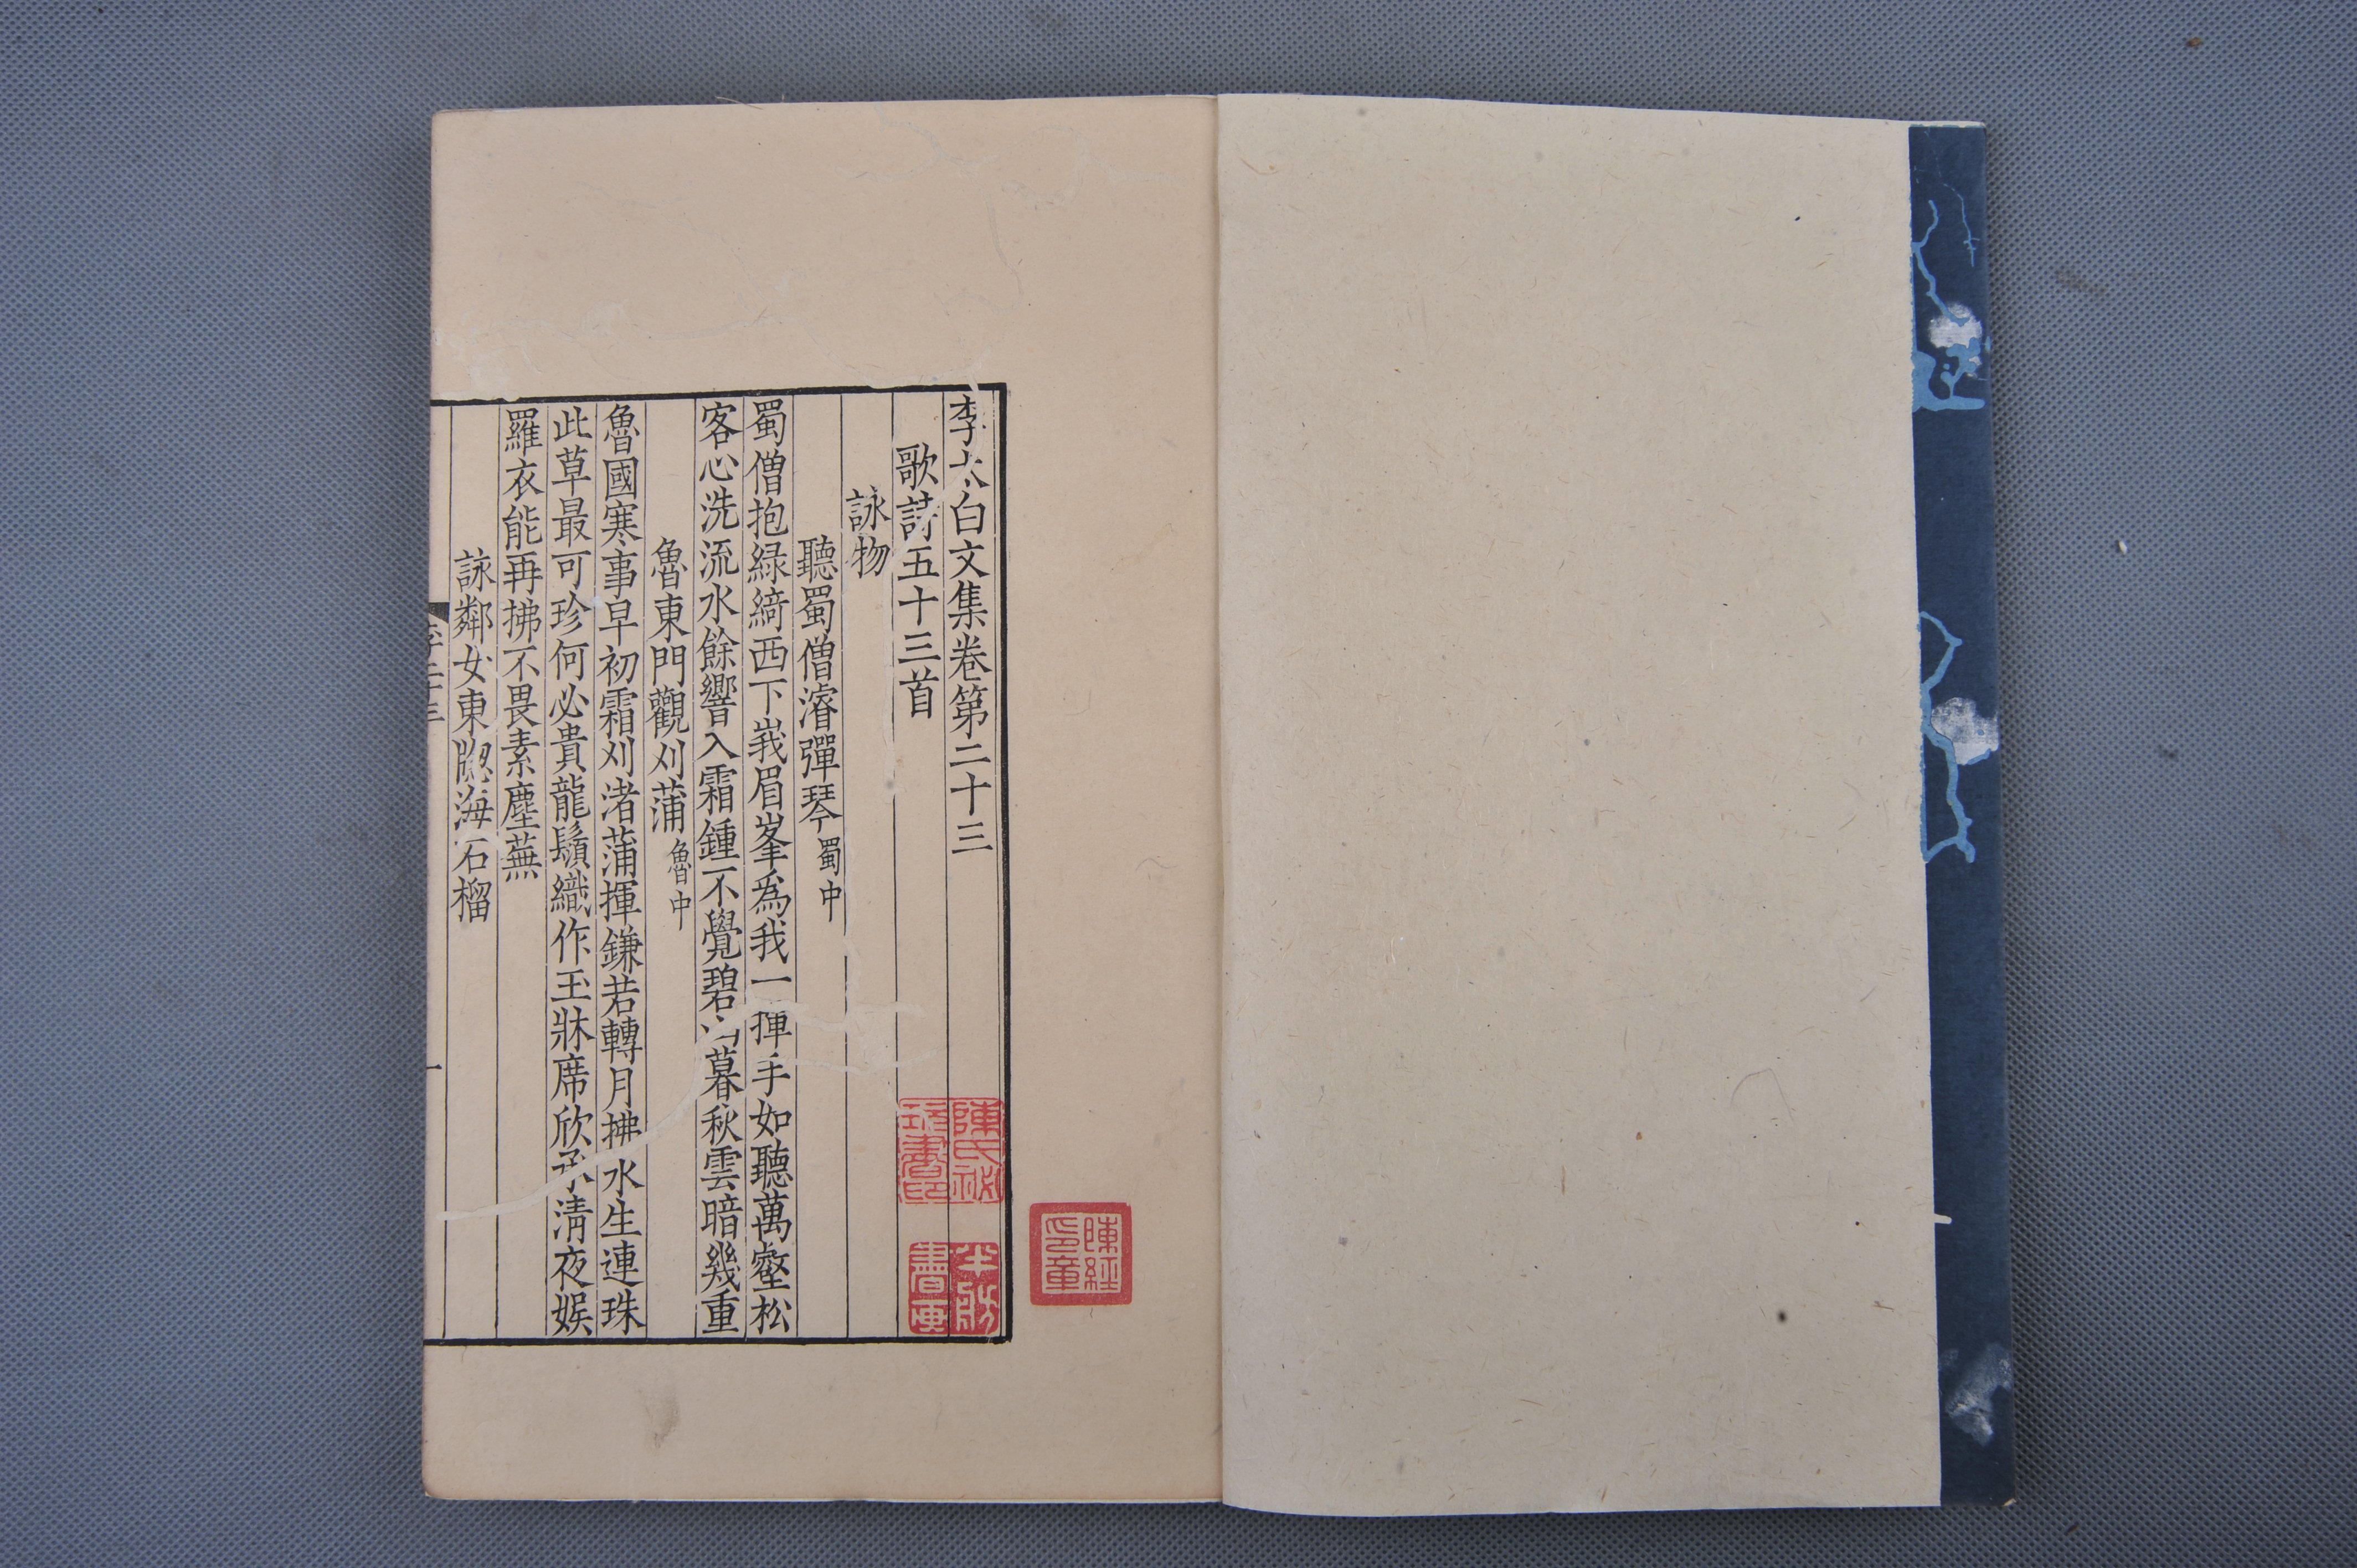 李太白文集卷第二十三
歌詩五十三首
詠物
聽蜀僧濬彈琴 蜀中
蜀僧抱緑綺西下峩眉峯爲我一揮手如聽萬壑松
客心洗流水餘響入霜鍾不覺碧山暮秋雲暗幾重
魯東門觀刈蒲 魯中
魯國寒事早初霜刈渚蒲揮鎌若轉月拂水生連珠
此草最可珍何必貴龍鬚織作玉牀席欣承清夜娛
羅衣能再拂不畏素塵蕪
詠鄰女東牎海石榴
一
陳經
印章
陳氏
書印
書